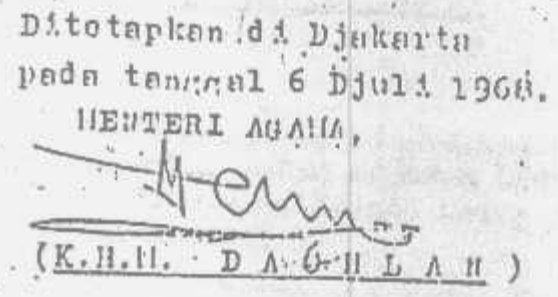 Ditetapkan di Djakarta
pada tanggal 6 Djuli 1968.
MENTERI AGAMA,
(K.H.M. DACHLAN)